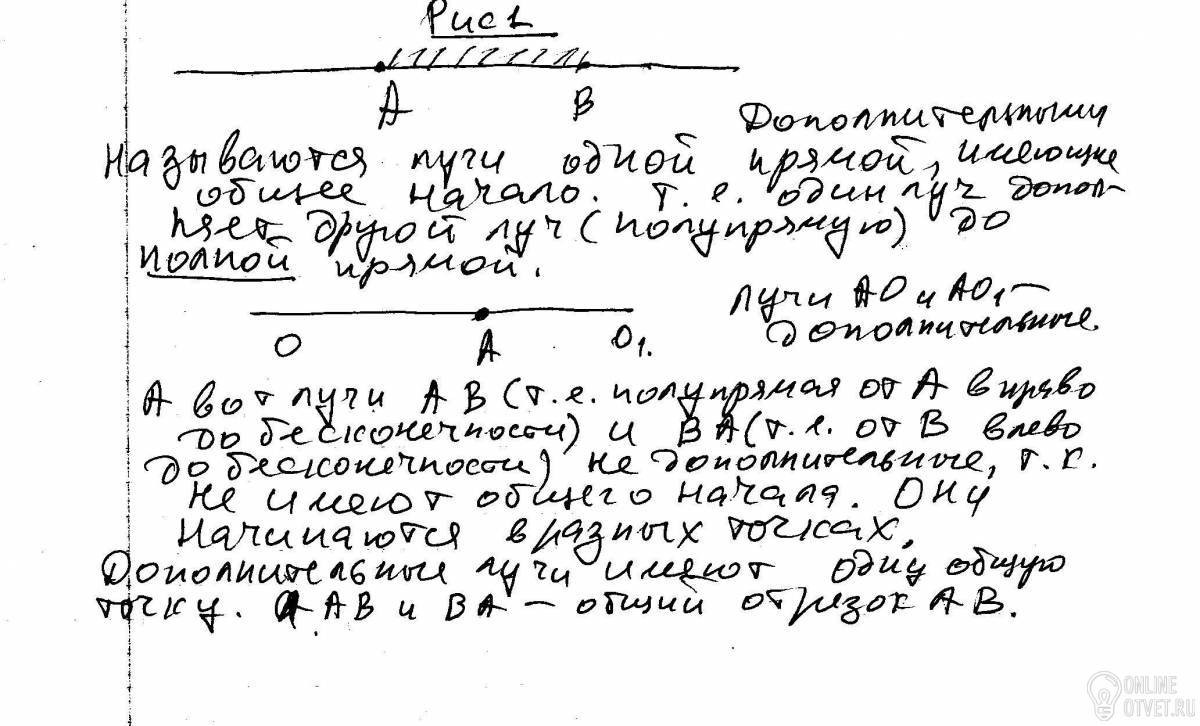 Рис 1
A B
Дополнительными
называются лучи одной прямой, имеющие
общее начало. т.е. один луч допол-
няет другой луч (полупрямую) до
полной прямой.
Лучи AO и AO₁ –
дополнительные.
O A O₁.
А вот лучи AB (т.е. полупрямая от A вправо
до бесконечности) и BA (т.е. от B влево
до бесконечности) не дополнительные, т.к.
не имеют общего начала. Они
начинаются в разных точках.
Дополнительные лучи имеют одну общую
точку. А AB и BA – общий отрезок AB.
ONLINE
OTVET.RU